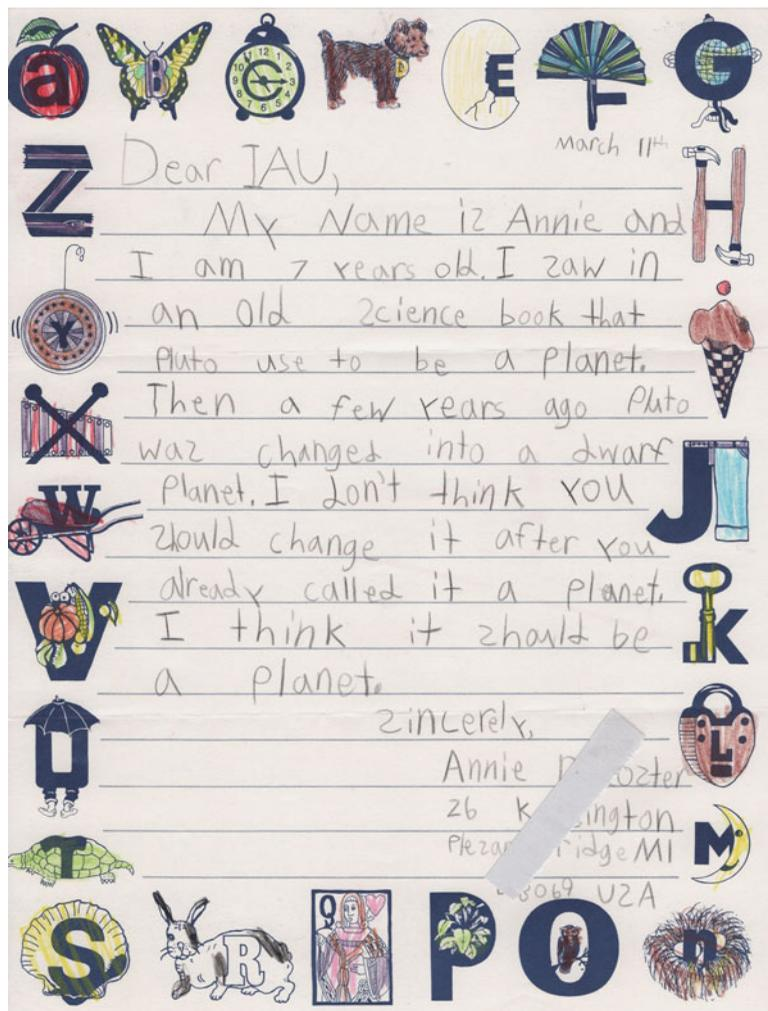 a B C D E F G
March 11th
Dear IAU,
My Name is Annie and
I am 7 years old. I saw in
an old science book that
Pluto use to be a planet.
Then a few years ago Pluto
was changed into a dwarf
planet. I don't think you
should change it after you
already called it a planet.
I think it should be
a planet.
Sincerely,
Annie
26
MI
USA
Z
Y
X
W
V
U
T
H
J
K
L
M
S R Q P O n